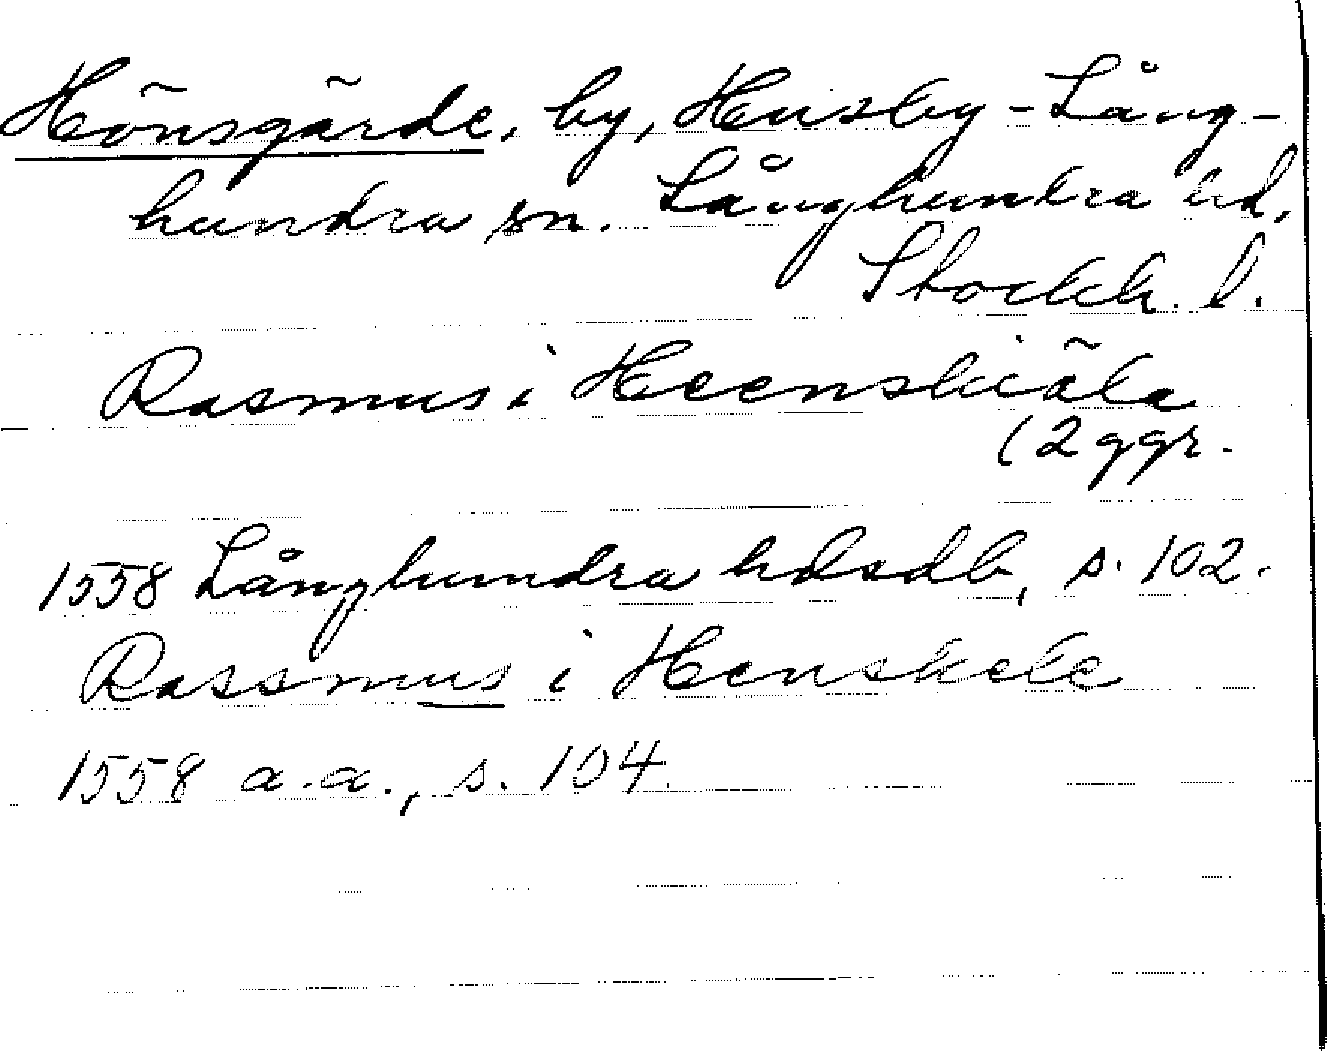 Hönsgärde, by, Husby-Lång-
hundra sn. Långhundra hd,
Stockh. l.
Rasmus i Heenskiäla
(2 ggr.
1558 Långhundra hdsdb, s. 102.
Rassmus i Henskele
1558 a.a., s. 104.